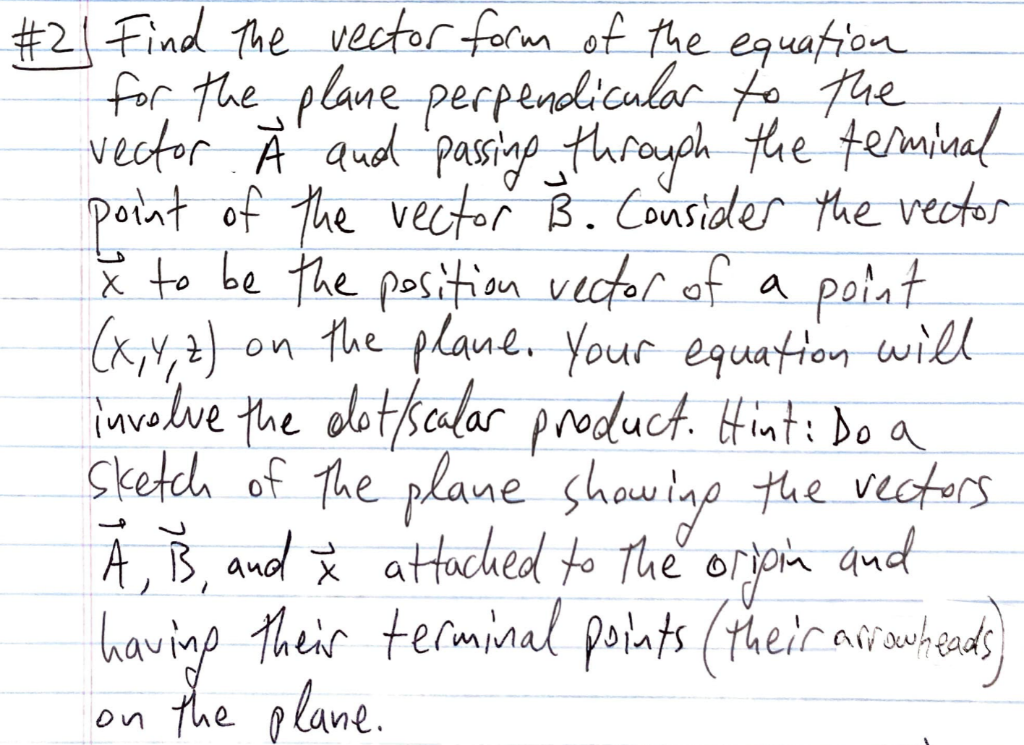 #2 Find the vector form of the equation
for the plane perpendicular to the
vector A⃗ and passing through the terminal
point of the vector B⃗. Consider the vector
x⃗ to be the position vector of a point
(x,y,z) on the plane. Your equation will
involve the dot/scalar product. Hint: Do a
sketch of the plane showing the vectors
A⃗, B⃗, and x⃗ attached to the origin and
having their terminal points (their arrowheads)
on the plane.